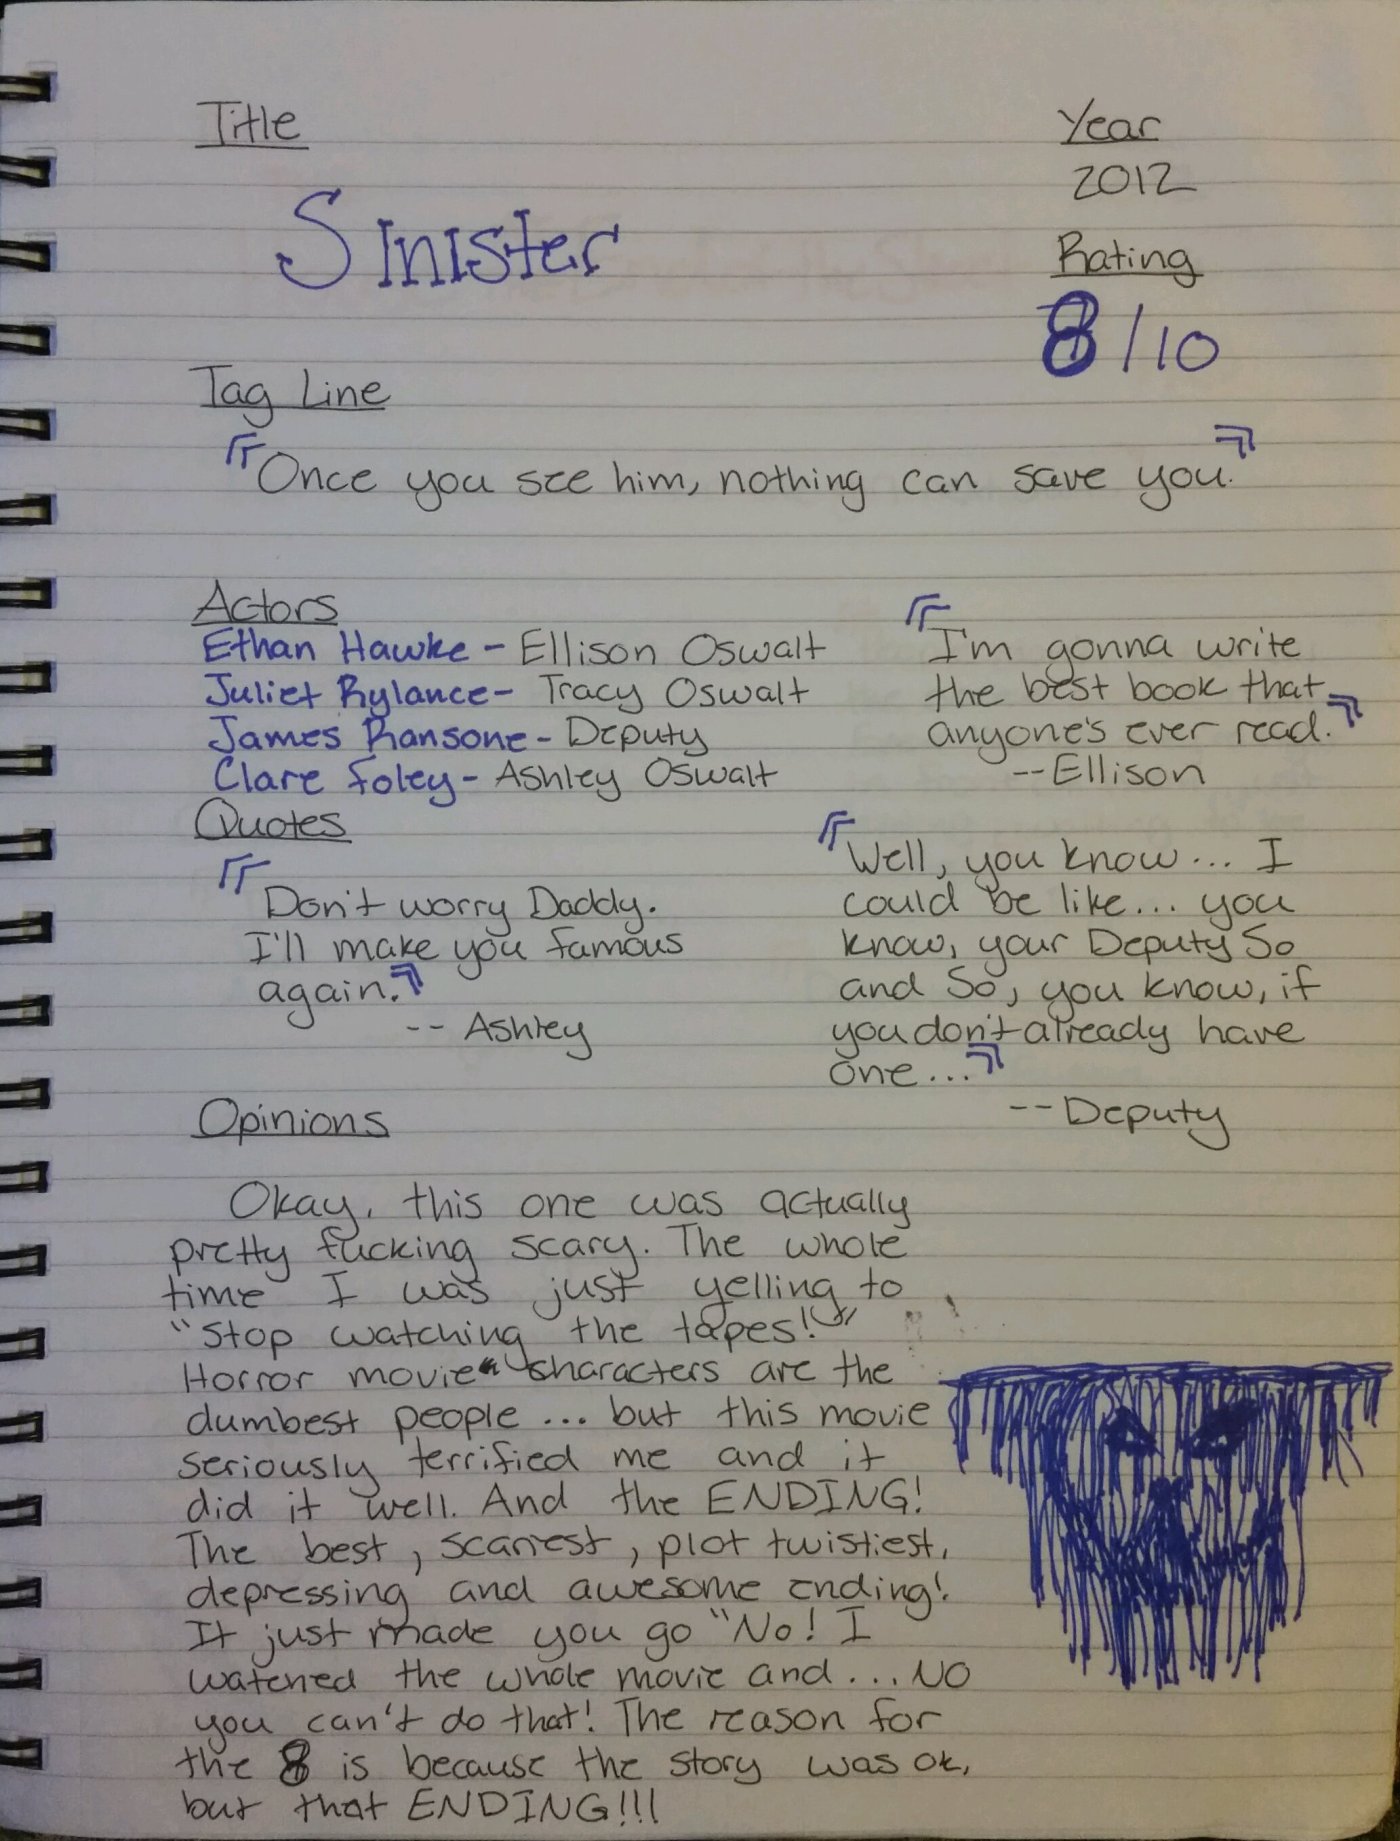 Title
Year
2012
Sinister
Rating
8/10
Tag Line
"Once you see him, nothing can save you."
Actors
Ethan Hawke - Ellison Oswalt
Juliet Rylance - Tracy Oswalt
James Ransone - Deputy
Clare Foley - Ashley Oswalt
"I'm gonna write
the best book that
anyone's ever read."
--Ellison
Quotes
"Don't worry Daddy.
I'll make you famous
again."
-- Ashley
"Well, you know... I
could be like... you
know, your Deputy So
and So, you know, if
you don't already have
one..."
--Deputy
Opinions
Okay, this one was actually
pretty fucking scary. The whole
time I was just yelling to
"stop watching the tapes!"
Horror movie characters are the
dumbest people ... but this movie
seriously terrified me and it
did it well. And the ENDING!
The best, scariest, plot twistiest,
depressing and awesome ending!
It just made you go "No! I
watched the whole movie and ... NO
you can't do that! The reason for
the 8 is because the story was ok,
but that ENDING!!!